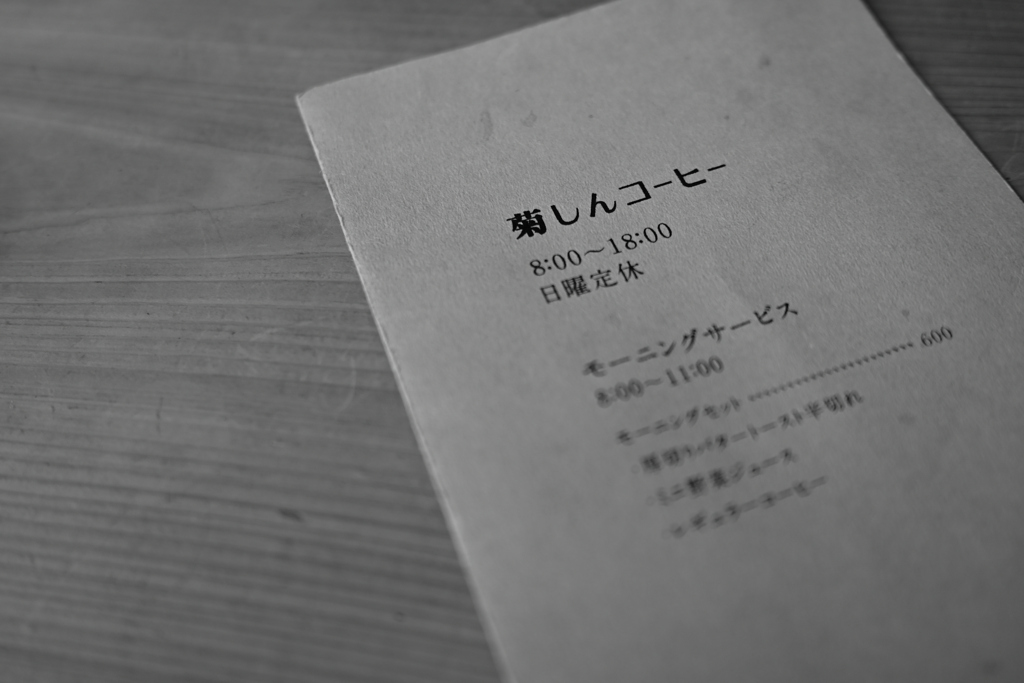 菊しんコーヒー
8:00〜18:00
日曜定休
モーニングサービス
8:00〜11:00
モーニングセット 600
・厚切りバタートースト半切れ
・ミニ野菜ジュース
・レギュラーコーヒー